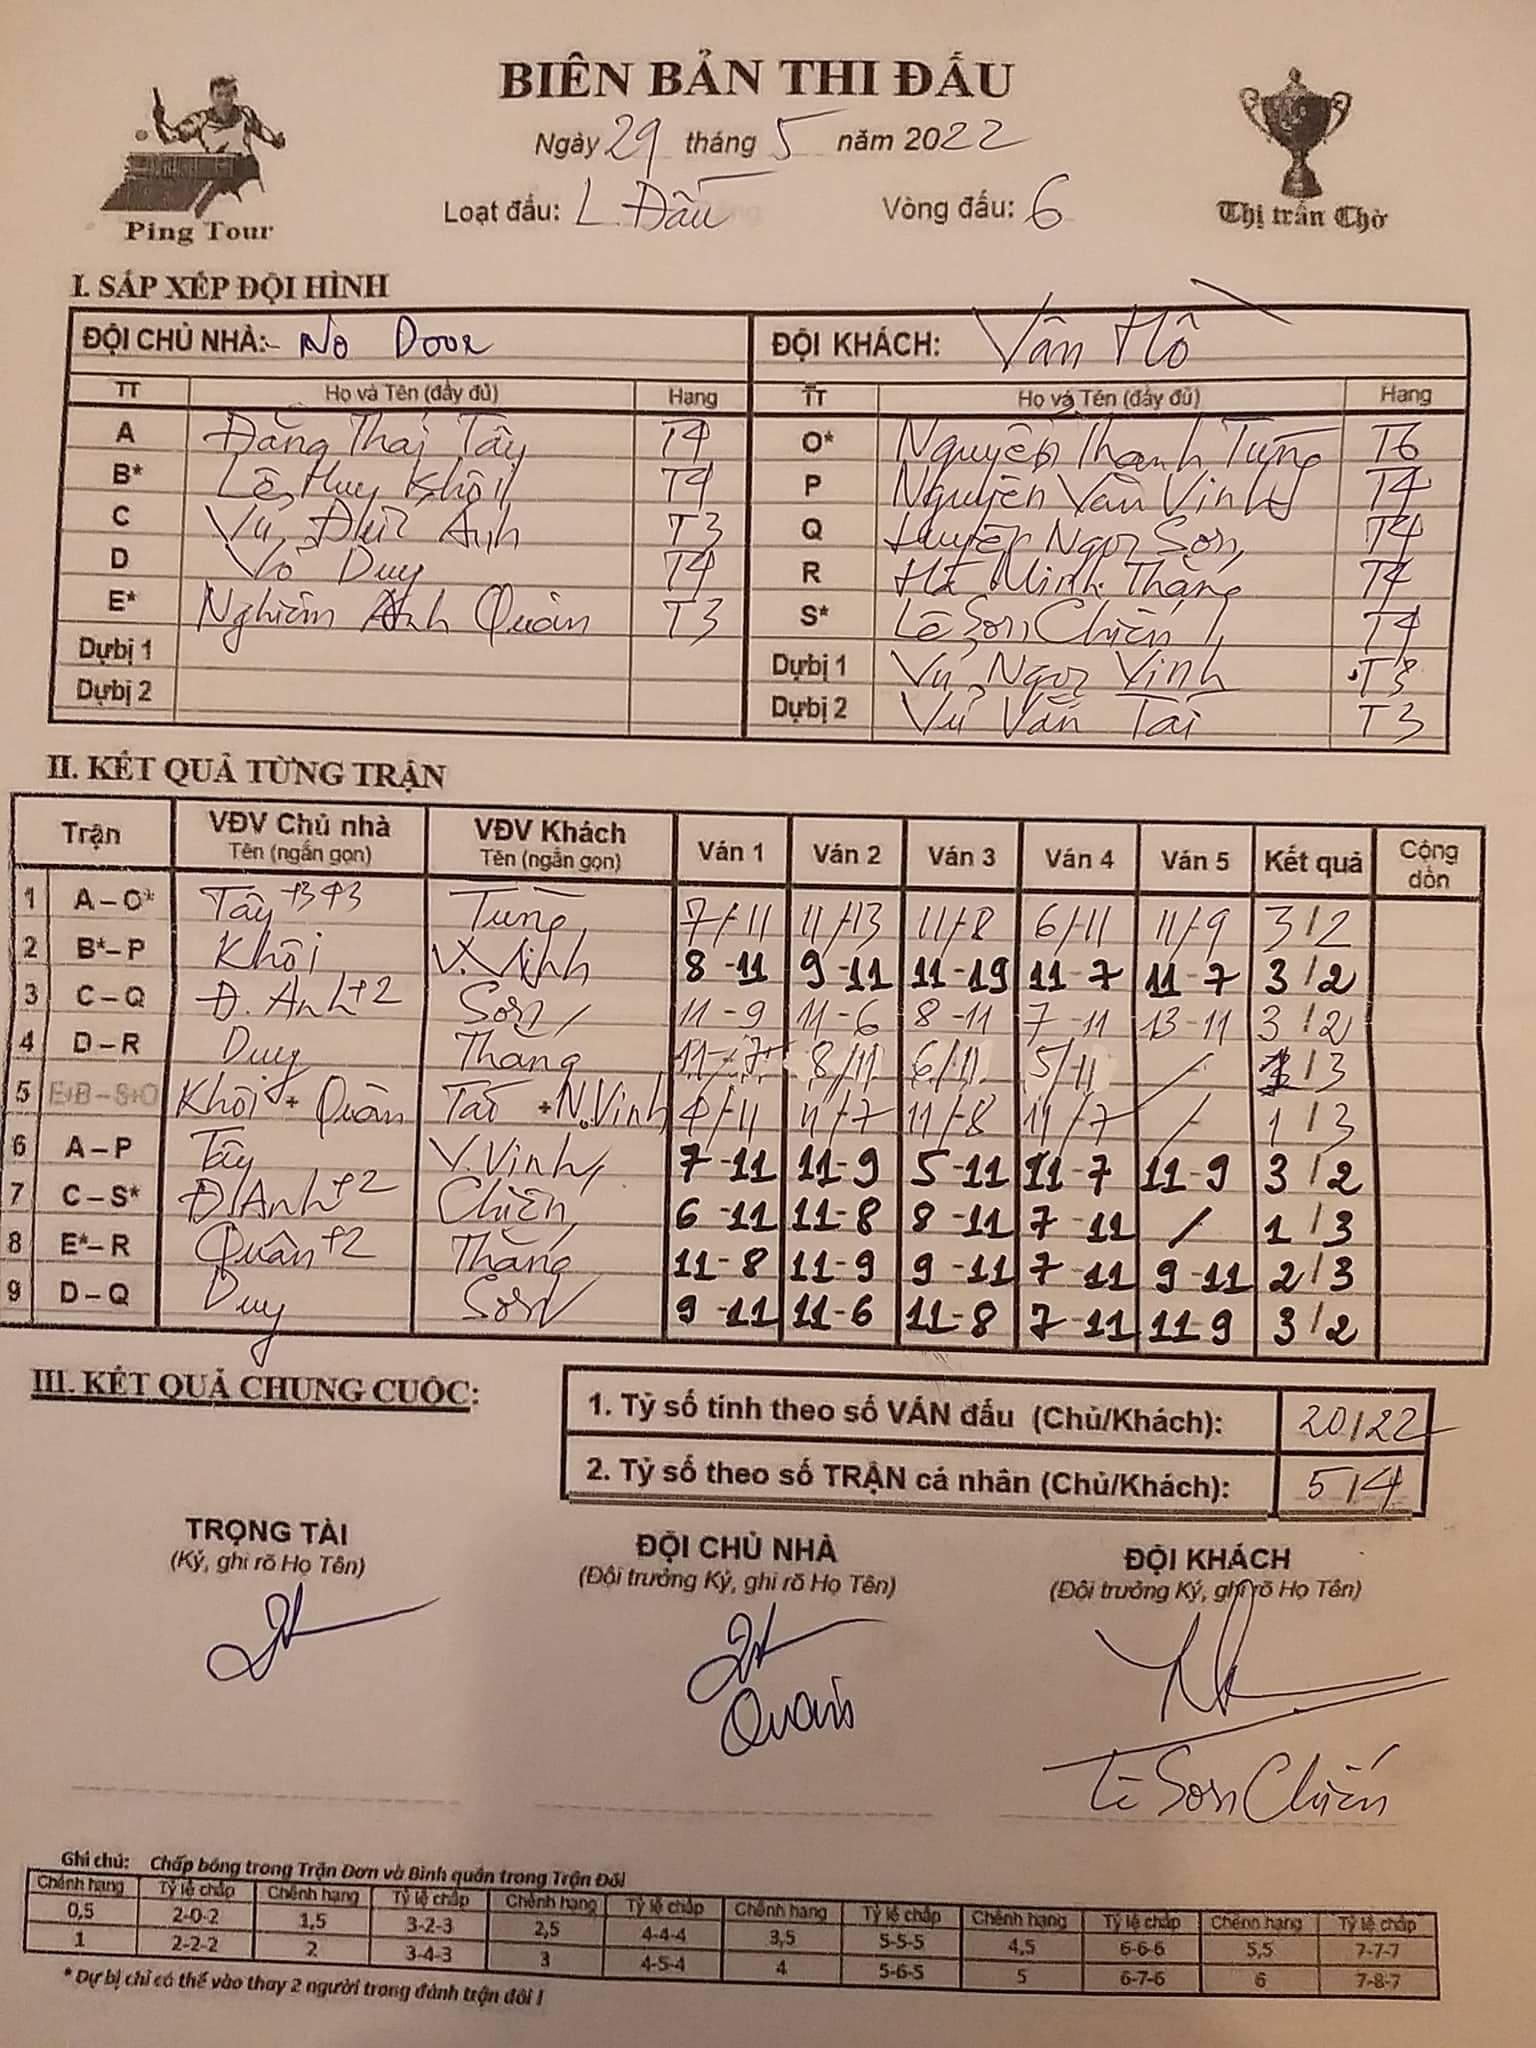 BIÊN BẢN THI ĐẤU
Ngày 29 tháng 5 năm 2022
Loạt đấu: L Đấu Vòng đấu: 6
Ping Tour
Thị trấn Chờ
I. SẮP XẾP ĐỘI HÌNH
ĐỘI CHỦ NHÀ: No Door ĐỘI KHÁCH: Vân Hồ
TT Họ và Tên (đầy đủ) Hạng TT Họ và Tên (đầy đủ) Hạng
A Đặng Thái Tây T4 O* Nguyễn Thanh Tùng T6
B* Lê Huy Khôi T4 P Nguyễn Văn Vinh T4
C Vũ Đức Anh T3 Q Ngọc Sơn T4
D Võ Duy T4 R Hà Minh Thắng T4
E* Nghiêm Anh Quân T3 S* Lê Sơn Chiến T4
Dự bị 1 Dự bị 1 Vũ Ngọc Vinh T3
Dự bị 2 Dự bị 2 Vũ Văn Tài T3
II. KẾT QUẢ TỪNG TRẬN
Trận VĐV Chủ nhà Tên (ngắn gọn) VĐV Khách Tên (ngắn gọn) Ván 1 Ván 2 Ván 3 Ván 4 Ván 5 Kết quả Cộng dồn
1 A – O* Tây +343 Tùng 7/11 11/13 11/8 6/11 11/9 3/2
2 B* – P Khôi V.Vinh 8-11 9-11 11-19 11-7 11-7 3/2
3 C – Q Đ.Anh+2 Sơn 11-9 11-6 8-11 7-11 13-11 3/2
4 D – R Duy Thắng 11-7 8/11 6/11 5/11 / 1/3
5 E+B – S+O Khôi + Quân Tài + N.Vinh 4/11 11/7 11/8 11/7 / 1/3
6 A – P Tây V.Vinh 7-11 11-9 5-11 11-7 11-9 3/2
7 C – S* Đ.Anh+2 Chiến 6-11 11-8 8-11 7-11 / 1/3
8 E* – R Quân+2 Thắng 11-8 11-9 9-11 7-11 9-11 2/3
9 D – Q Duy Sơn 9-11 11-6 11-8 7-11 11-9 3/2
III. KẾT QUẢ CHUNG CUỘC:
1. Tỷ số tính theo số VÁN đấu (Chủ/Khách): 20/22
2. Tỷ số theo số TRẬN cá nhân (Chủ/Khách): 5/4
TRỌNG TÀI ĐỘI CHỦ NHÀ ĐỘI KHÁCH
(Ký, ghi rõ Họ Tên) (Đội trưởng Ký, ghi rõ Họ Tên) (Đội trưởng Ký, ghi rõ Họ Tên)
Quân
Lê Sơn Chiến
Ghi chú: Chấp bóng trong Trận Đơn và Bình quân trong Trận Đôi
Chênh hạng Tỷ lệ chấp Chênh hạng Tỷ lệ chấp Chênh hạng Tỷ lệ chấp Chênh hạng Tỷ lệ chấp Chênh hạng Tỷ lệ chấp Chênh hạng Tỷ lệ chấp
0,5 2-0-2 1,5 3-2-3 2,5 4-4-4 3,5 5-5-5 4,5 6-6-6 5,5 7-7-7
1 2-2-2 2 3-4-3 3 4-5-4 4 5-6-5 5 6-7-6 6 7-8-7
* Dự bị chỉ có thể vào thay 2 người trong đánh trận đôi !